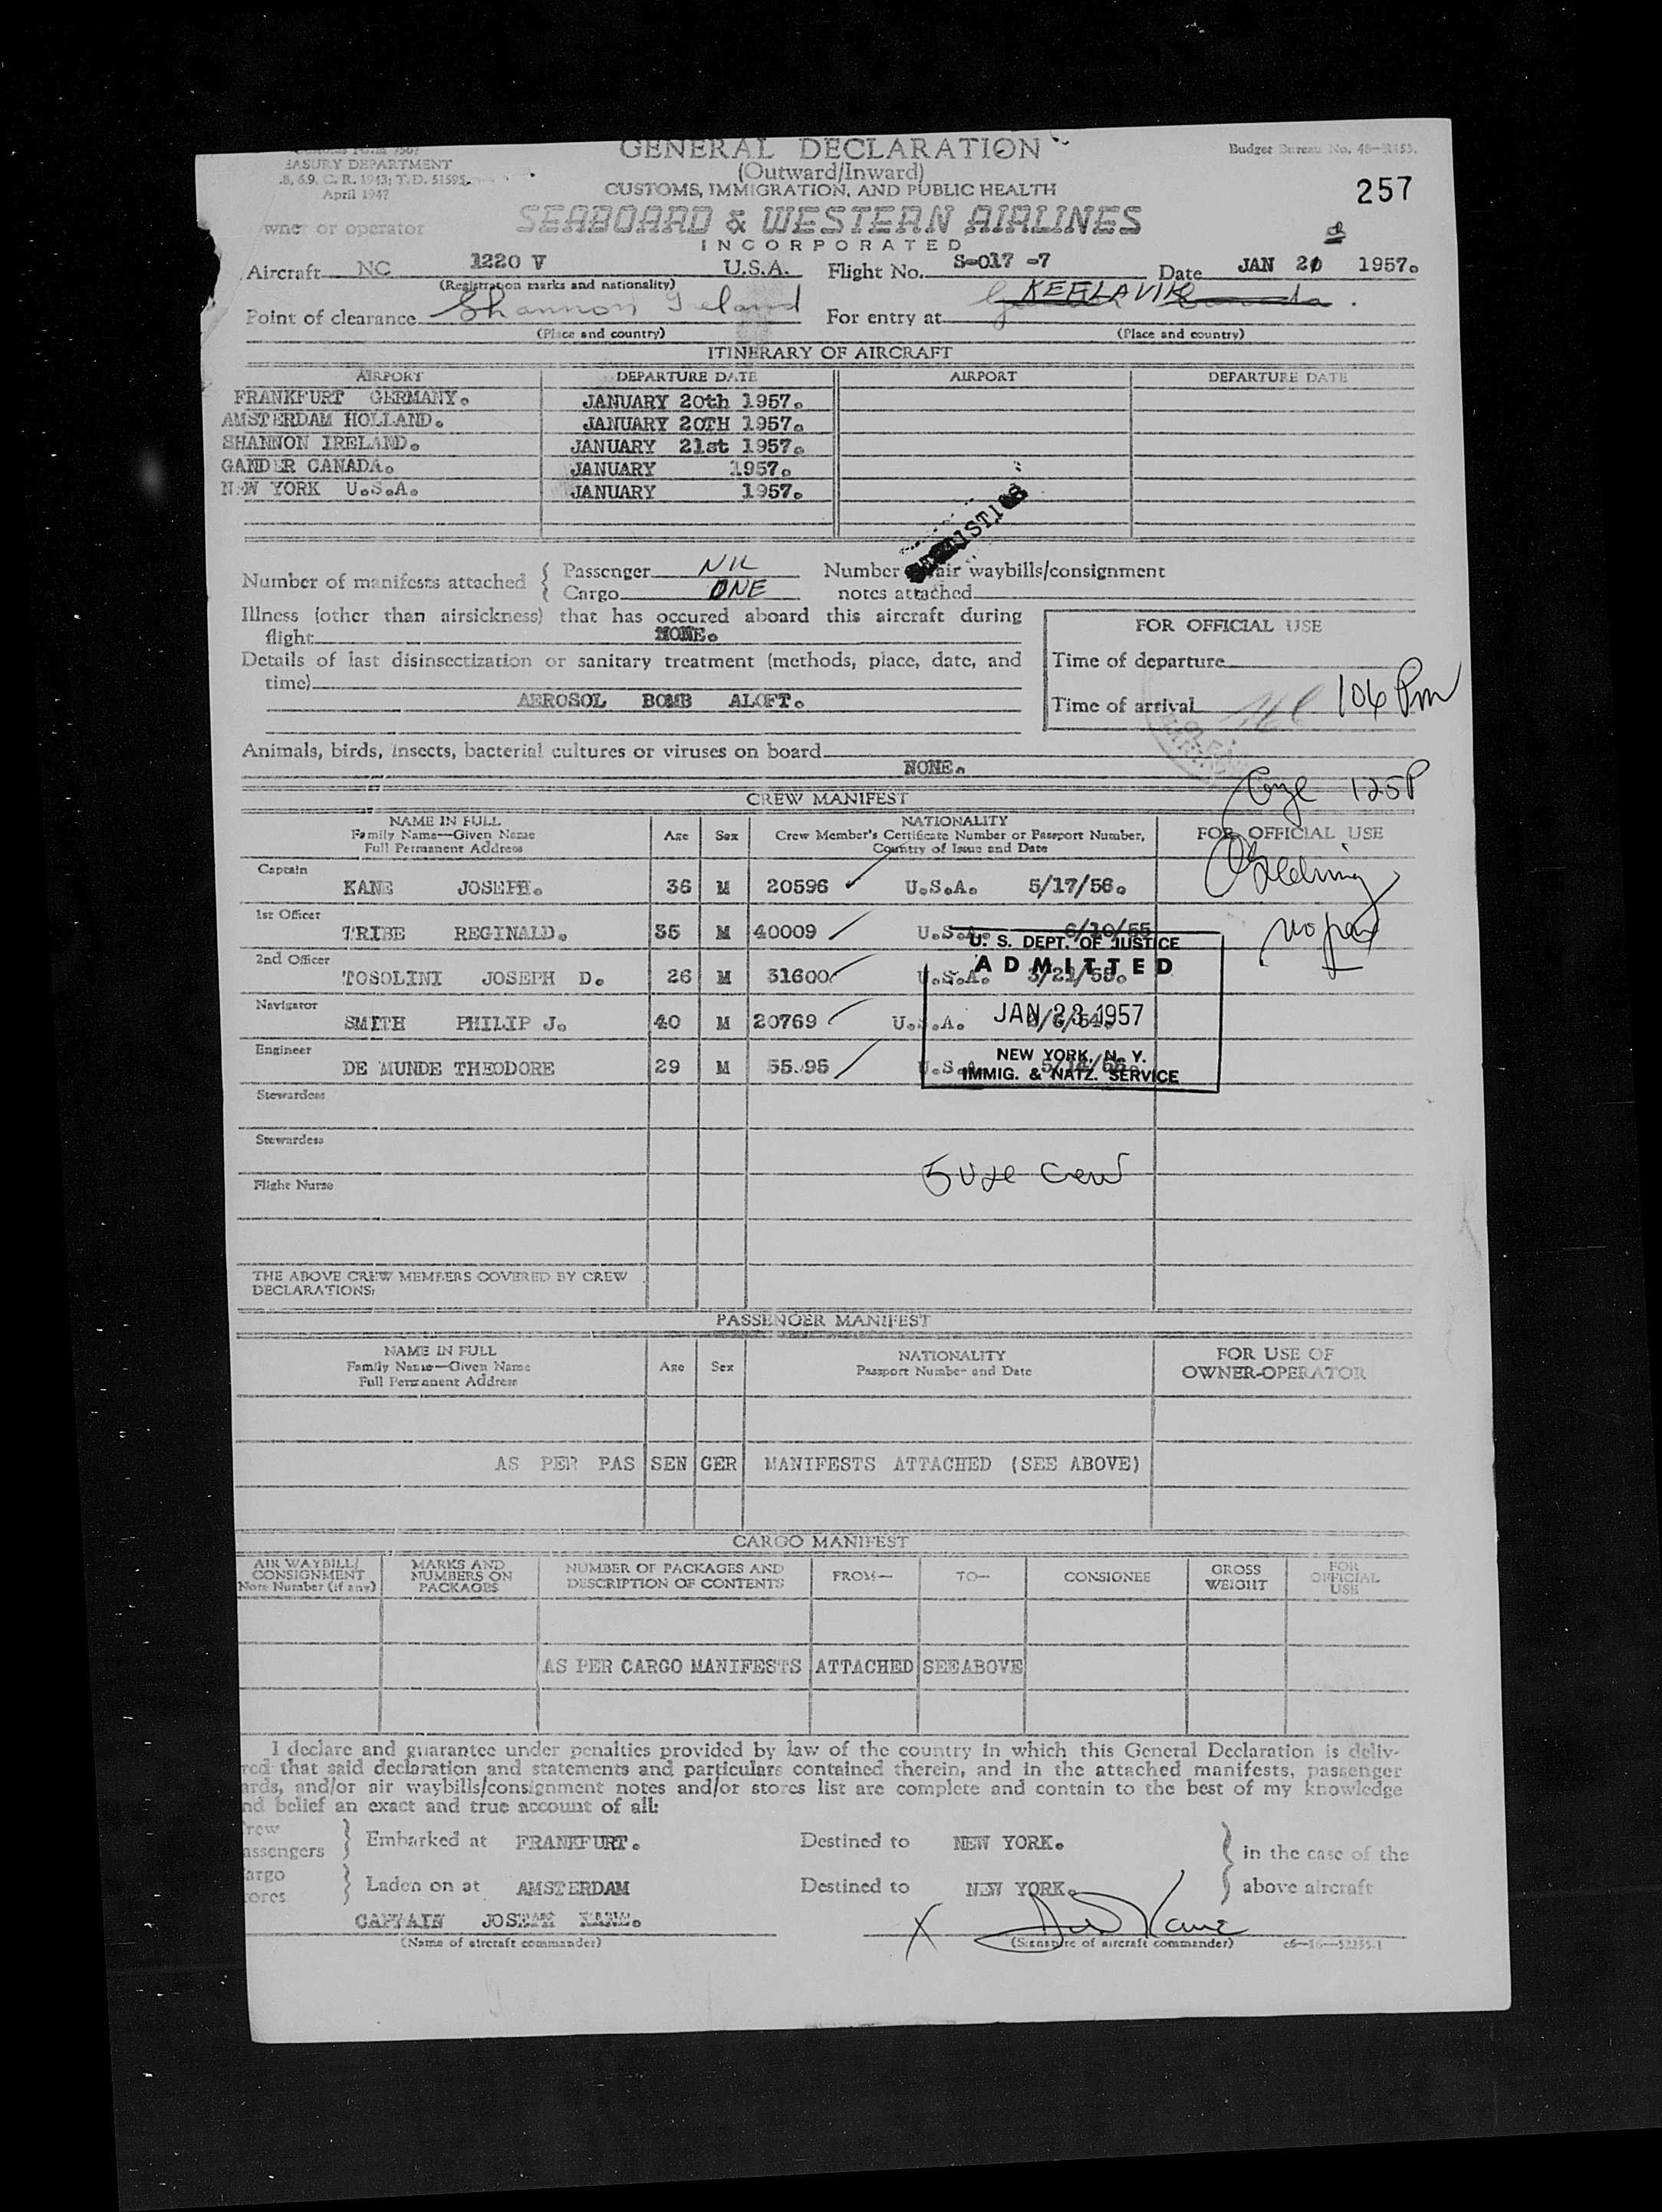 TREASURY DEPARTMENT
8, 6.9, C. R. 1943; T. D. 51595.
April 1947
GENERAL DECLARATION
(Outward/Inward)
CUSTOMS, IMMIGRATION, AND PUBLIC HEALTH
Budget Bureau No. 48-R153.
257
wner or operator
SEABOARD & WESTERN AIRLINES
INCORPORATED
Aircraft NC 1220 V U.S.A. Flight No. S-017 -7 Date JAN 20 1957.
(Registration marks and nationality)
Point of clearance Shannon Ireland For entry at KEFLAVIK
(Place and country) (Place and country)
ITINERARY OF AIRCRAFT
AIRPORT DEPARTURE DATE AIRPORT DEPARTURE DATE
FRANKFURT GERMANY. JANUARY 20th 1957.
AMSTERDAM HOLLAND. JANUARY 20TH 1957.
SHANNON IRELAND. JANUARY 21st 1957.
GANDER CANADA. JANUARY 1957.
NEW YORK U.S.A. JANUARY 1957.
Number of manifests attached { Passenger NIL
Cargo ONE
Number air waybills/consignment
notes attached
Illness (other than airsickness) that has occured aboard this aircraft during
flight NONE.
Details of last disinsectization or sanitary treatment (methods, place, date, and
time)
AEROSOL BOMB ALOFT.
FOR OFFICIAL USE
Time of departure
Time of arrival 106 Pm
Animals, birds, insects, bacterial cultures or viruses on board
NONE.
125P
CREW MANIFEST
NAME IN FULL
Family Name—Given Name
Full Permanent Address
Age Sex
NATIONALITY
Crew Member's Certificate Number or Passport Number,
Country of Issue and Date
FOR OFFICIAL USE
Captain
KANE JOSEPH. 36 M 20596 U.S.A. 5/17/56.
1st Officer
TRIBE REGINALD. 35 M 40009 U.S.A. 6/10/55
2nd Officer
TOSOLINI JOSEPH D. 26 M 31600 U.S.A. 3/21/55.
Navigator
SMITH PHILIP J. 40 M 20769 U.S.A.
Engineer
DE MUNDE THEODORE 29 M U.S.A.
U. S. DEPT. OF JUSTICE
ADMITTED
JAN 23 1957
NEW YORK, N. Y.
IMMIG. & NATZ. SERVICE
Stewardess
Stewardess
Flight Nurse
5 USC Crew
THE ABOVE CREW MEMBERS COVERED BY CREW
DECLARATIONS:
PASSENGER MANIFEST
NAME IN FULL
Family Name—Given Name
Full Permanent Address
Age Sex
NATIONALITY
Passport Number and Date
FOR USE OF
OWNER-OPERATOR
AS PER PAS SEN GER MANIFESTS ATTACHED (SEE ABOVE)
CARGO MANIFEST
AIR WAYBILL/
CONSIGNMENT
Note Number (if any)
MARKS AND
NUMBERS ON
PACKAGES
NUMBER OF PACKAGES AND
DESCRIPTION OF CONTENTS
FROM— TO— CONSIGNEE
GROSS
WEIGHT
FOR
OFFICIAL
USE
AS PER CARGO MANIFESTS ATTACHED SEE ABOVE
I declare and guarantee under penalties provided by law of the country in which this General Declaration is deliv-
red that said declaration and statements and particulars contained therein, and in the attached manifests, passenger
ards, and/or air waybills/consignment notes and/or stores list are complete and contain to the best of my knowledge
nd belief an exact and true account of all:
rew
assengers } Embarked at FRANKFURT. Destined to NEW YORK. } in the case of the
argo
tores } Laden on at AMSTERDAM Destined to NEW YORK. } above aircraft
CAPTAIN JOSEPH KANE. X
(Name of aircraft commander) (Signature of aircraft commander) c6—16—52255-1